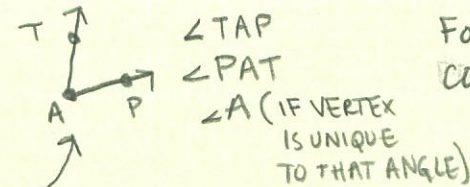 T
∠TAP
∠PAT
A
P
∠A (IF VERTEX
IS UNIQUE
TO THAT ANGLE)